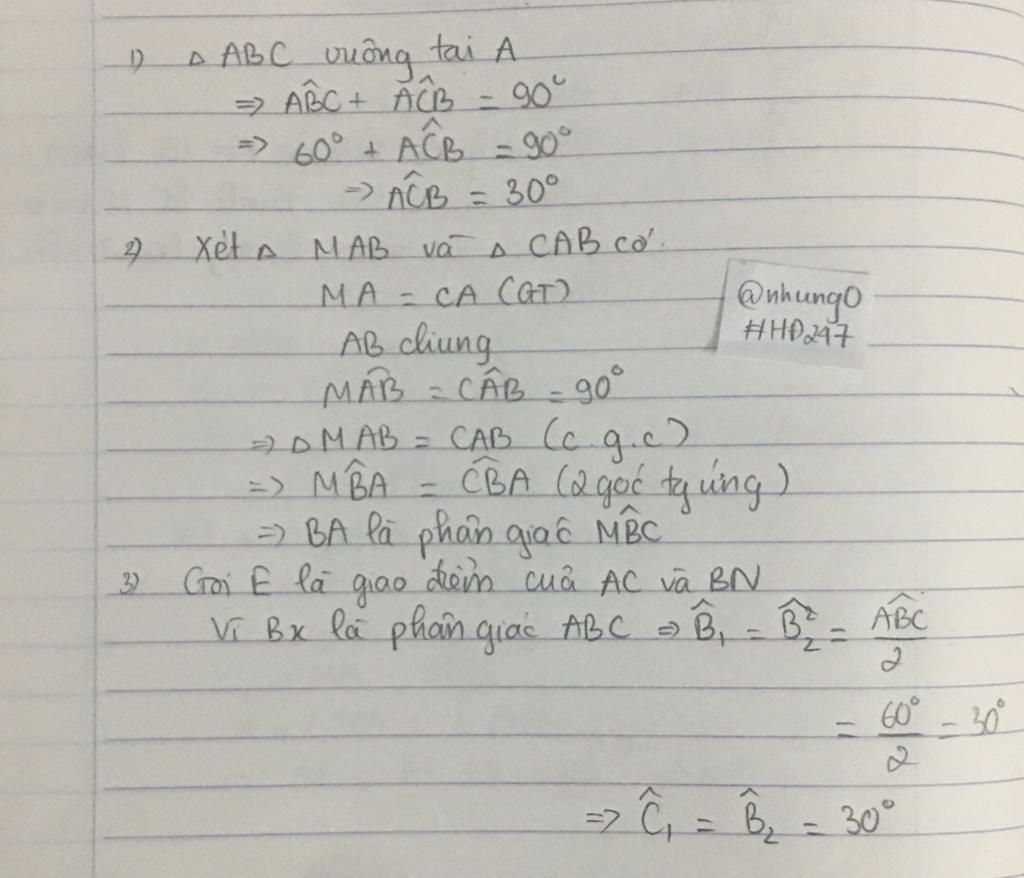 1) △ ABC vuông tai A
⇒ AB̂C + AĈB = 90°
⇒ 60° + AĈB = 90°
⇒ AĈB = 30°
2) Xét △ MAB và △ CAB có.
MA = CA (GT)
AB chung
MÂB = CÂB = 90°
⇒ △ MAB = CAB (c.g.c)
⇒ MB̂A = CB̂A (2 góc tg ứng)
⇒ BA là phân giác MB̂C
@nhung0
#HĐ247
3) Gọi E là giao điểm cuả AC và BN
Vì Bx là phân giác ABC ⇒ B̂₁ = B̂₂² = AB̂C / 2
= 60° / 2 = 30°
⇒ Ĉ₁ = B̂₂ = 30°